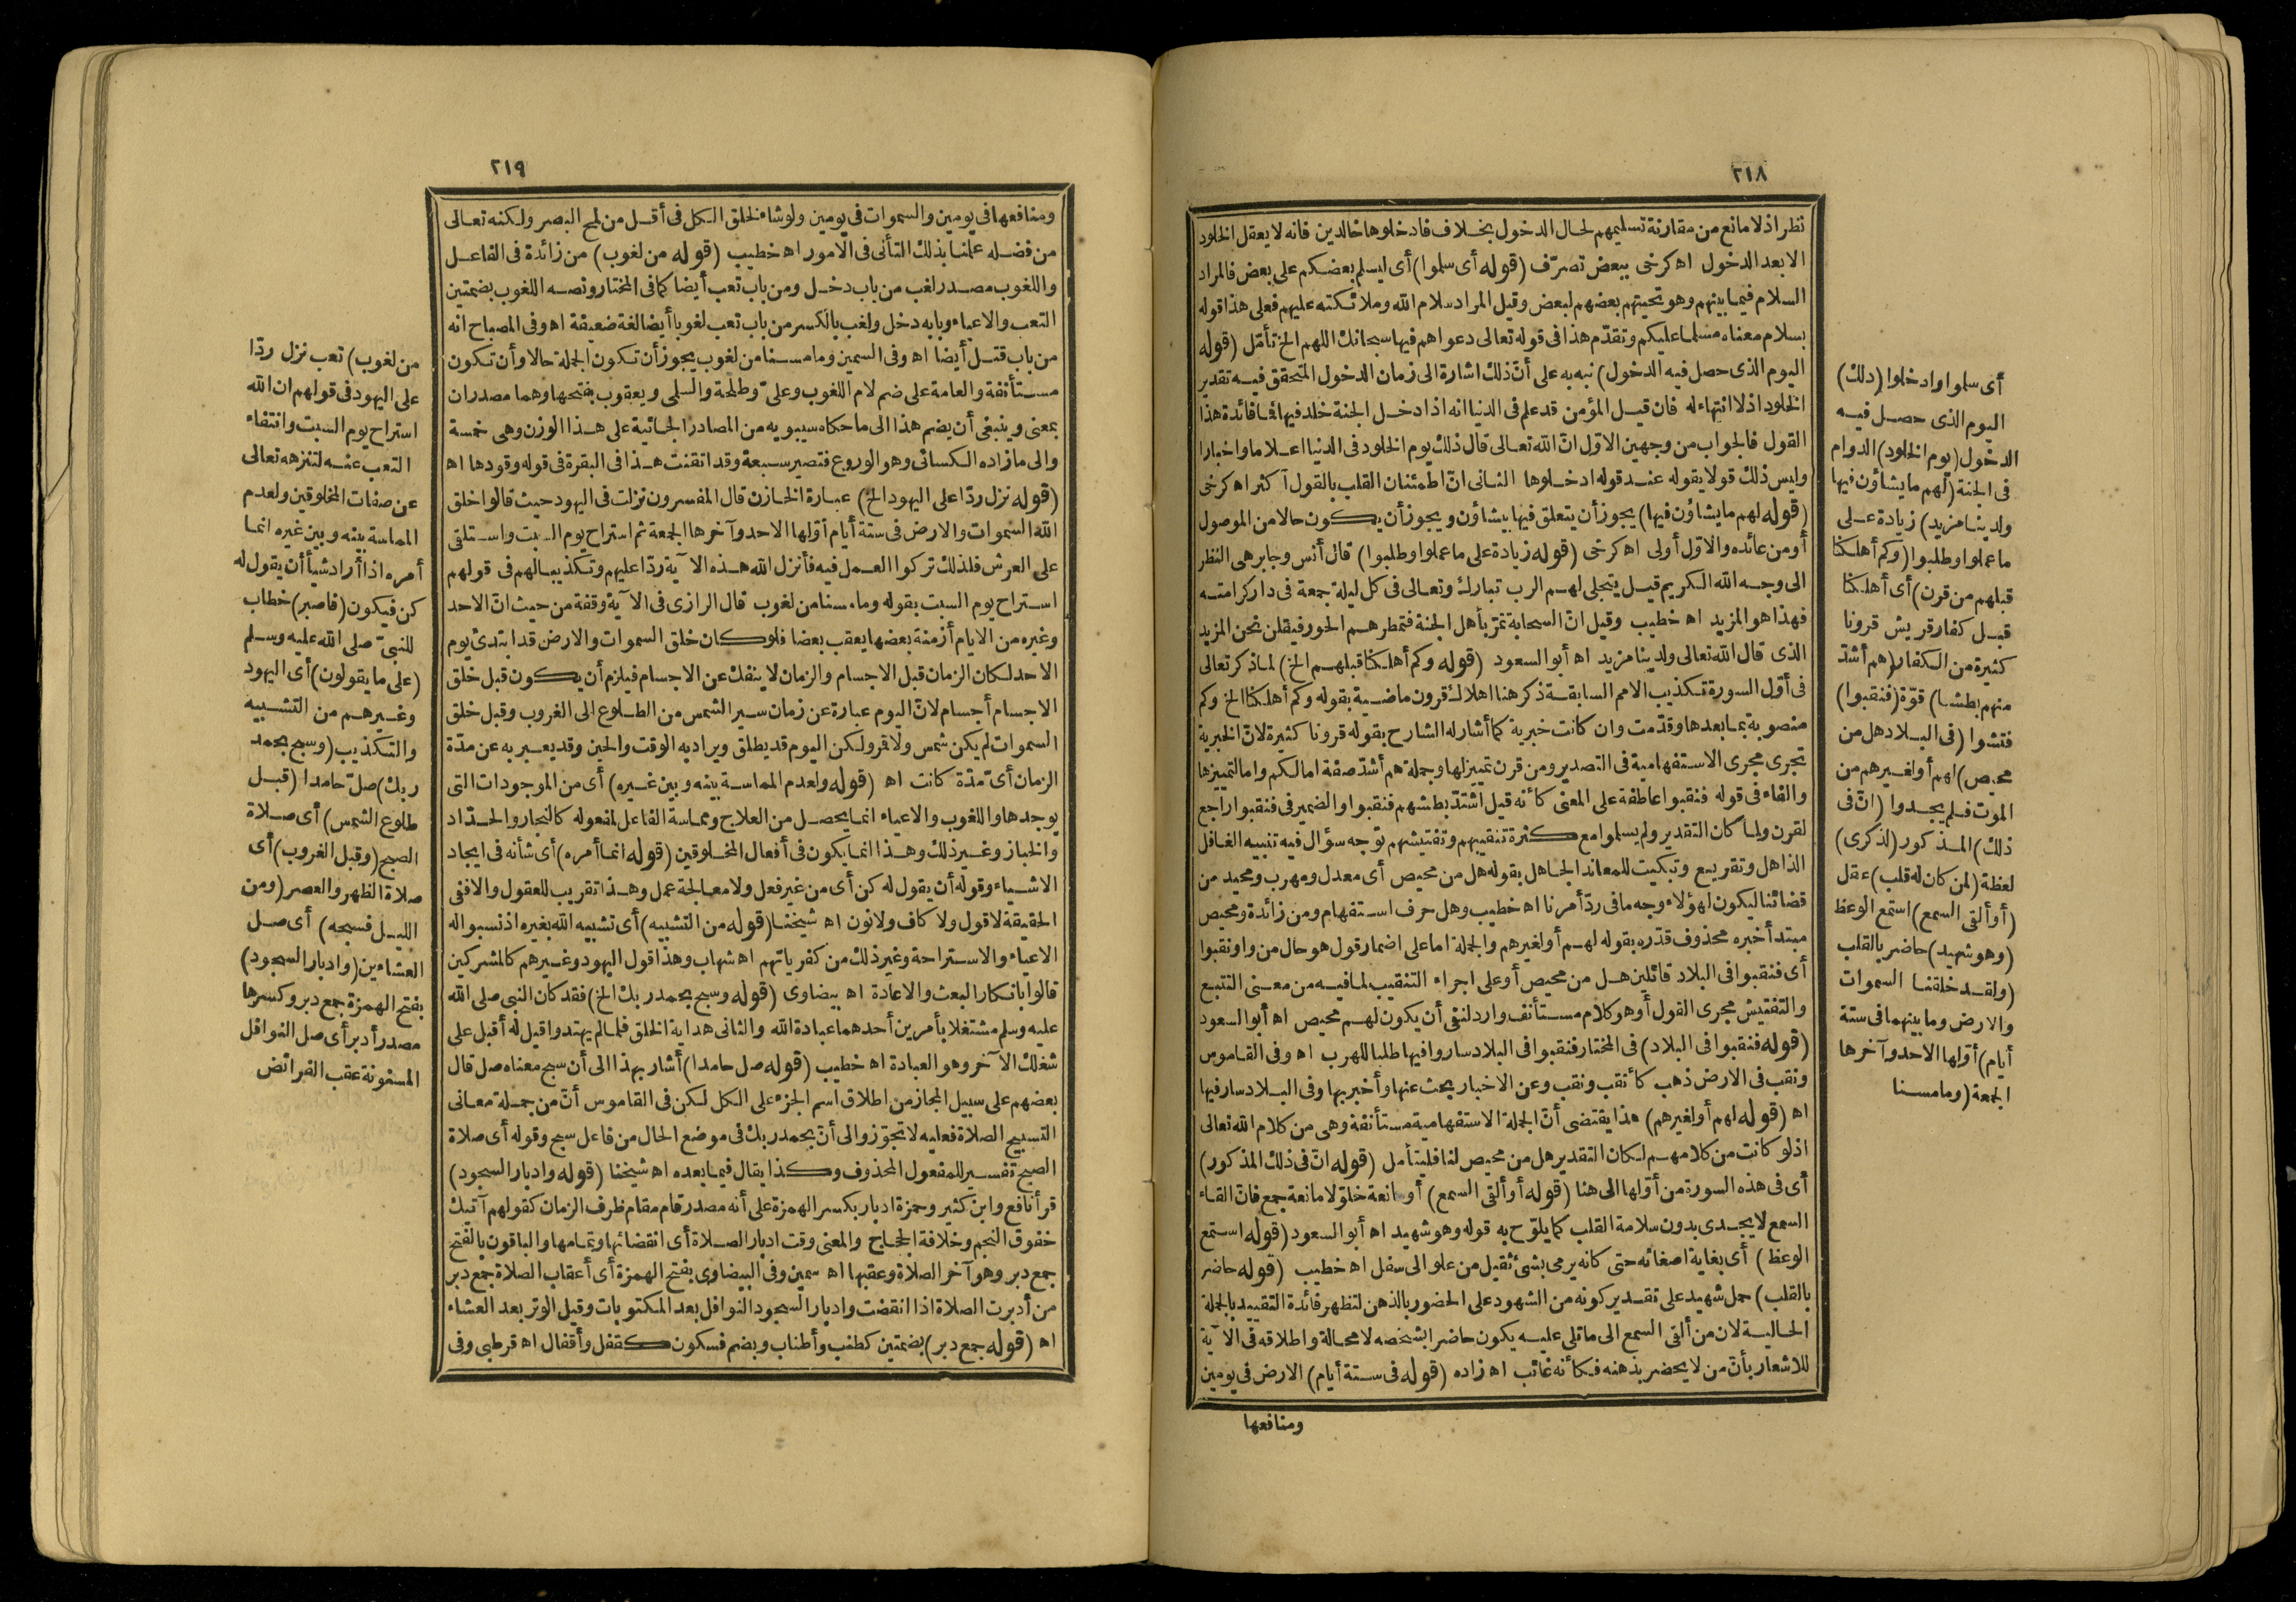 ٢١٨
نظر اذ لا مانع من مقارنة تسليمهم لحال الدخول بخلاف فادخلوها خالدين فانه لا يعقل الخلود
الا بعد الدخول اه كرخى ببعض تصرّف (قوله أى سلموا) أى ليسلم بعضكم على بعض فالمراد
السلام فيما بينهم وهو تحيتهم بعضهم لبعض وقيل المراد سلام الله وملائكته عليهم فعلى هذا قوله
بسلام معناه مسلما عليكم وتقدّم هذا فى قوله تعالى دعواهم فيها سبحانك اللهم الخ تأمّل (قوله
اليوم الذى حصل فيه الدخول) نبه به على أنّ ذلك اشارة الى زمان الدخول المتحقق فيه تقدير
الخلود اذ لا انتهاء له فان قيل المؤمن قد علم فى الدنيا انه اذا دخل الجنة خلد فيها فما فائدة هذا
القول فالجواب من وجهين الاوّل انّ الله تعالى قال ذلك يوم الخلود فى الدنيا اعلاما واخبارا
وليس ذلك قولا يقوله عند قوله ادخلوها الثانى انّ اطمئنان القلب بالقول آكثر اه كرخى
(قوله لهم ما يشاؤن فيها) يجوز أن يتعلق فيها بيشاؤن ويجوز أن يكون حالا من الموصول
أو من عائده والاوّل أولى اه كرخى (قوله زيادة على ما عملوا وطلبوا) قال أنس وجابر هى النظر
الى وجه الله الكريم قيل يتجلى لهم الرب تبارك وتعالى فى كل ليلة جمعة فى دار كرامته
فهذا هو المزيد اه خطيب وقيل انّ السحابة تمرّ بأهل الجنة فتمطرهم الحور فيقلن نحن المزيد
الذى قال الله تعالى ولدينا مزيد اه أبو السعود (قوله وكم أهلكنا قبلهم الخ) لما ذكر تعالى
فى أوّل السورة تكذيب الامم السابقة ذكر هنا اهلاك قرون ماضية بقوله وكم أهلكنا الخ وكم
منصوبة بما بعدها وقدّمت وان كانت خبرية كما أشار له الشارح بقوله قرونا كثيرة لانّ الخبرية
تجرى مجرى الاستفهامية فى التصدير ومن قرن تمييز لها وجملة هم أشدّ صفة اما لكم واما لتمييزها
والفاء فى قوله فنقبوا عاطفة على المعنى كأنه قيل اشتدّ بطشهم فنقبوا والضمير فى فنقبوا راجع
لقرن ولما كان التقدير ولم يسلموا مع كثرة تنقيبهم وتفتيشهم توّجه سؤال فيه تنبيه الغافل
الذاهل وتقريع وتبكيت للمعاند الجاهل بقوله هل من محيص أى معدل ومهرب ومحيد من
قضائنا ليكون لهؤلاء وجه ما فى ردّ أمرنا اه خطيب وهل حرف استفهام ومن زائدة ومحيص
مبتدأ خبره محذوف قدّره بقوله لهم أو لغيرهم والجملة اما على اضمار قول هو حال من واو نقبوا
أى فنقبوا فى البلاد قائلين هل من محيص أو على اجراء التنقيب لما فيه من معنى التتبع
والتفتيش مجرى القول أو هو كلام مستأنف وارد لنفى أن يكون لهم محيص اه أبو السعود
(قوله فنقبوا فى البلاد) فى المختار فنقبوا فى البلاد ساروا فيها طلبا للهرب اه وفى القاموس
ونقب فى الارض ذهب كأنقب ونقب وعن الاخبار بحث عنها وأخبر بها وفى البلاد سار فيها
اه (قوله لهم أو لغيرهم) هذا يقتضى أنّ الجملة الاستفهامية مستأنفة وهى من كلام الله تعالى
اذ لو كانت من كلامهم لكان التقدير هل من محيص لنا فليتأمل (قوله انّ فى ذلك المذكور)
أى فى هذه السورة من أوّلها الى هنا (قوله أو ألقى السمع) أو مانعة خلوّ لا مانعة جمع فانّ القاء
السمع لا يجدى بدون سلامة القلب كما يلوّح به قوله وهو شهيد اه أبو السعود (قوله استمع
الوعظ) أى بغاية اصغائه حتى كانه يرمى بشئ ثقيل من علو الى سفل اه خطيب (قوله حاضر
بالقلب) حمل شهيد على تقدير كونه من الشهود على الحضور بالذهن لتظهر فائدة التقييد بالجملة
الحالية لان من ألقى السمع الى ما تلى عليه يكون حاضرا بشخصه لا محالة واطلاقه فى الآية
للاشعار بأنّ من لا يحضر بذهنه فكأنه غائب اه زاده (قوله فى ستة أيام) الارض فى يومين
ومنافعها
أى سلموا وادخلوا (ذلك)
اليوم الذى حصل فيه
الدخول (يوم الخلود) الدوام
فى الجنة (لهم ما يشاؤن فيها
ولدينا مزيد) زيادة على
ما عملوا وطلبوا (وكم أهلكنا
قبلهم من قرن) أى أهلكنا
قبل كفار قريش قرونا
كثيرة من الكفار (هم أشدّ
منهم بطشا) قوّة (فنقبوا)
فتشوا (فى البلاد هل من
محيص) لهم أو لغيرهم من
الموت فلم يجدوا (انّ فى
ذلك) المذكور (لذكرى)
لعظة (لمن كان له قلب) عقل
(أو ألقى السمع) استمع الوعظ
(وهو شهيد) حاضر بالقلب
(ولقد خلقنا السموات
والارض وما بينهما فى ستة
أيام) أوّلها الاحد وآخرها
الجمعة (وما مسنا
٢١٩
ومنافعها فى يومين والسموات فى يومين ولو شاء لخلق الكل فى أقل من لمح البصر ولكنه تعالى
من فضله علمنا بذلك التأنى فى الامور اه خطيب (قوله من لغوب) من زائدة فى الفاعل
واللغوب مصدر لغب من باب دخل ومن باب تعب أيضا كما فى المختار ونصه اللغوب بضمتين
التعب والاعياء وبابه دخل ولغب بالكسر من باب تعب لغوبا أيضا لغة ضعيفة اه وفى المصباح انه
من باب قتل أيضا اه وفى السمين وما مسنا من لغوب يجوز أن تكون الجملة حالا وأن تكون
مستأنفة والعامة على ضم لام اللغوب وعلىّ وطلحة والسلمى ويعقوب بفتحها وهما مصدران
بمعنى وينبغى أن يضم هذا الى ما حكاه سيبويه من المصادر الجائية على هذا الوزن وهى خمسة
والى ما زاده الكسائى وهو الوروع فتصير سبعة وقد اتقنت هذا فى البقرة فى قوله وقودها اه
(قوله نزل ردّا على اليهود الخ) عبارة الخازن قال المفسرون نزلت فى اليهود حيث قالوا خلق
الله السموات والارض فى ستة أيام أوّلها الاحد وآخرها الجمعة ثم استراح يوم السبت واستلقى
على العرش فلذلك تركوا العمل فيه فأنزل الله هذه الآية ردّا عليهم وتكذيبا لهم فى قولهم
استراح يوم السبت بقوله وما مسنا من لغوب قال الرازى فى الآية وقفة من حيث انّ الاحد
وغيره من الايام أزمنة بعضها يعقب بعضا فلو كان خلق السموات والارض قد ابتدئ يوم
الاحد لكان الزمان قبل الاجسام والزمان لا ينفك عن الاجسام فيلزم أن يكون قبل خلق
الاجسام أجسام لانّ اليوم عبارة عن زمان سير الشمس من الطلوع الى الغروب وقبل خلق
السموات لم يكن شمس ولا قمر ولكن اليوم قد يطلق ويراد به الوقت والحين وقد يعبر به عن مدّة
الزمان أىّ مدّة كانت اه (قوله ولعدم المماسة بينه وبين غيره) أى من الموجودات التى
يوجدها واللغوب والاعياء انما يحصل من العلاج ومماسة الفاعل لمفعوله كالنجار والحدّاد
والخباز وغير ذلك وهذا انما يكون فى أفعال المخلوقين (قوله انما أمره) أى شأنه فى ايجاد
الاشياء وقوله أن يقول له كن أى من غير فعل ولا معالجة عمل وهذا تقريب للعقول والا ففى
الحقيقة لا قول ولا كاف ولا نون اه شيخنا (قوله من التشبيه) أى تشبيه الله بغيره اذ نسبوا له
الاعياء والاستراحة وغير ذلك من كفرياتهم اه شهاب وهذا قول اليهود وغيرهم كالمشركين
قالوا بانكار البعث والاعادة اه بيضاوى (قوله وسبح بحمد ربك الخ) فقد كان النبى صلى الله
عليه وسلم مشتغلا بأمرين أحدهما عبادة الله والثانى هداية الخلق فلما لم يهتدوا قيل له أقبل على
شغلك الآخر وهو العبادة اه خطيب (قوله صل حامدا) أشار بهذا الى أن سبح معناه صل قال
بعضهم على سبيل المجاز من اطلاق اسم الجزء على الكل لكن فى القاموس أنّ من جملة معانى
التسبيح الصلاة فعليه لا تجوّز والى أنّ بحمد ربك فى موضع الحال من فاعل سبح وقوله أى صلاة
الصبح تفسير للمفعول المحذوف وكذا يقال فيما بعده اه شيخنا (قوله وادبار السجود)
قرأ نافع وابن كثير وحمزة ادبار بكسر الهمزة على أنه مصدر قام مقام ظرف الزمان كقولهم آتيك
خفوق النجم وخلافة الحجاج والمعنى وقت ادبار الصلاة أى انقضائها وتمامها والباقون بالفتح
جمع دبر وهو آخر الصلاة وعقبها اه سمين وفى البيضاوى بفتح الهمزة أى أعقاب الصلاة جمع دبر
من أدبرت الصلاة اذا انقضت وادبار السجود النوافل بعد المكتوبات وقيل الوتر بعد العشاء
اه (قوله جمع دبر) بضمتين كطنب وأطناب وبضم فسكون كقفل وأقفال اه قرطبى وفى
من لغوب) تعب نزل ردّا
على اليهود فى قولهم ان الله
استراح يوم السبت وانتفاء
التعب عنه لتنزهه تعالى
عن صفات المخلوقين ولعدم
المماسة بينه وبين غيره انما
أمره اذا أراد شيأ أن يقول له
كن فيكون (فاصبر) خطاب
للنبىّ صلى الله عليه وسلم
(على ما يقولون) أى اليهود
وغيرهم من التشبيه
والتكذيب (وسبح بحمد
ربك) صلّ حامدا (قبل
طلوع الشمس) أى صلاة
الصبح (وقبل الغروب) أى
صلاة الظهر والعصر (ومن
الليل فسبحه) أى صل
العشاءين (وادبار السجود)
بفتح الهمزة جمع دبر وكسرها
مصدر أدبر أى صل النوافل
المسنونة عقب الفرائض